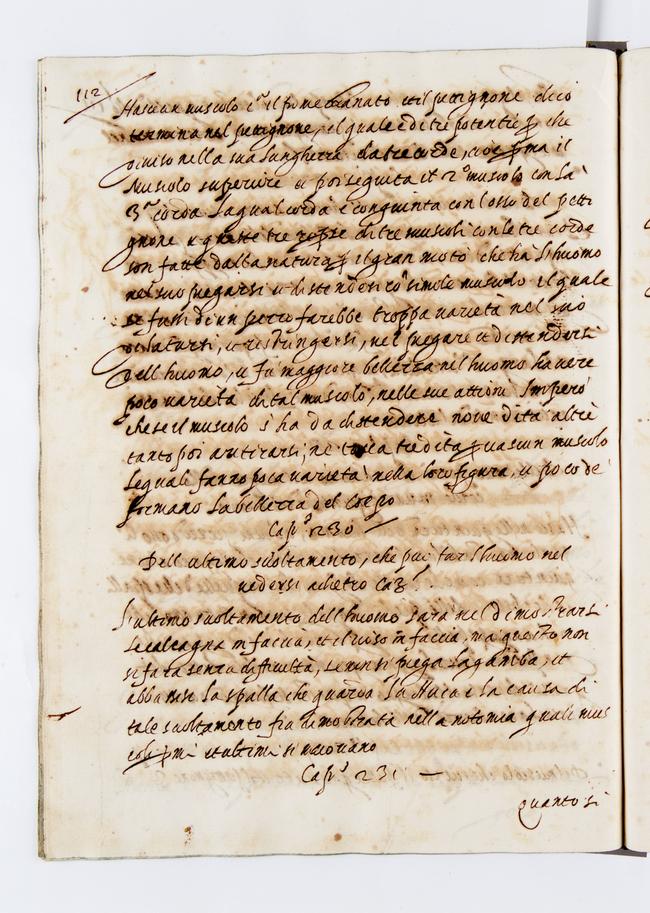 112
Nasce un muscolo il fine et il pettignone cioè
termina nel pettignone, il quale è di tre potentie che
diviso nella sua lunghezza da tre corde, cioè pma il
Muscolo superiore et poi seguita il 2º muscolo con la
3ª corda la qual corda è congiunta con l'osso del petti
gnone et queste tre di tre muscoli con le tre corde
son fatte dalla natura p il gran moto che ha l'huomo
nel suo piegarsi et distendersi cō simole muscolo il quale
se fussi di un pezzo farebbe troppa varietà nel suo
dilatarsi, et ristringersi, nel piegare et distendersi
dell huomo, et fa maggiore bellezza nel huomo havere
poca varietà di tal muscolo, nelle sue attioni Imperò
che se il muscolo s'ha da distendere nove dita altre
tanto poi a ritirarsi; ne tocca tre dita p ciascun muscolo
le quali fanno poca varietà nella loro figura, et poco de
formano la bellezza del Corpo
Cap.º 230
Dell ultimo svoltamento, che può far l'huomo nel
vedersi adietro Ca3º.
L'ultimo svoltamento dell huomo sarà nel dimostrarsi
le calcagna in faccia, et il viso in faccia, ma questo non
si fara senza difficultà, se non si piega la gamba, et
abbassisi la spalla che guarda la Nuca e la causa di
tale svoltamento fia dimostrata nella notomia quali mus
coli pmi et ultimi si muovano
Cap.º 231
Quanto si